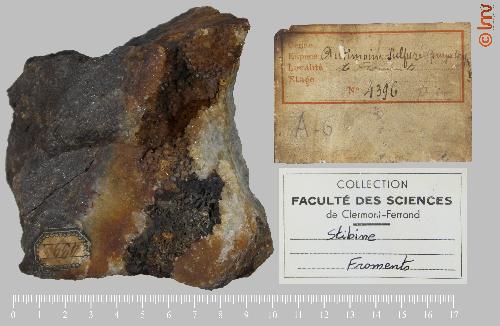 © lmv
Genre
Espèce Antimoine sulfuré
Localité
Etage
N° 4396
A-6
COLLECTION
FACULTÉ DES SCIENCES
de Clermont-Ferrand
Stibine
Froments
0 1 2 3 4 5 6 7 8 9 10 11 12 13 14 15 16 17